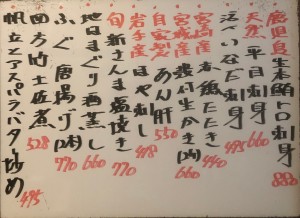 鹿児島 生本鮪トロ刺身 880
天然 平目刺身 495
活〆 刺身 660
宮崎産 440
宮城産 殻付生かき(1ヶ) 
自家製 あん肝 550
岩手産 ほや刺し 498
旬 新さんま塩焼き 770
地はまぐり酒蒸し 660
ふぐ唐揚げ(2本) 770
四方竹土佐煮 528
帆立とアスパラバター炒め 495